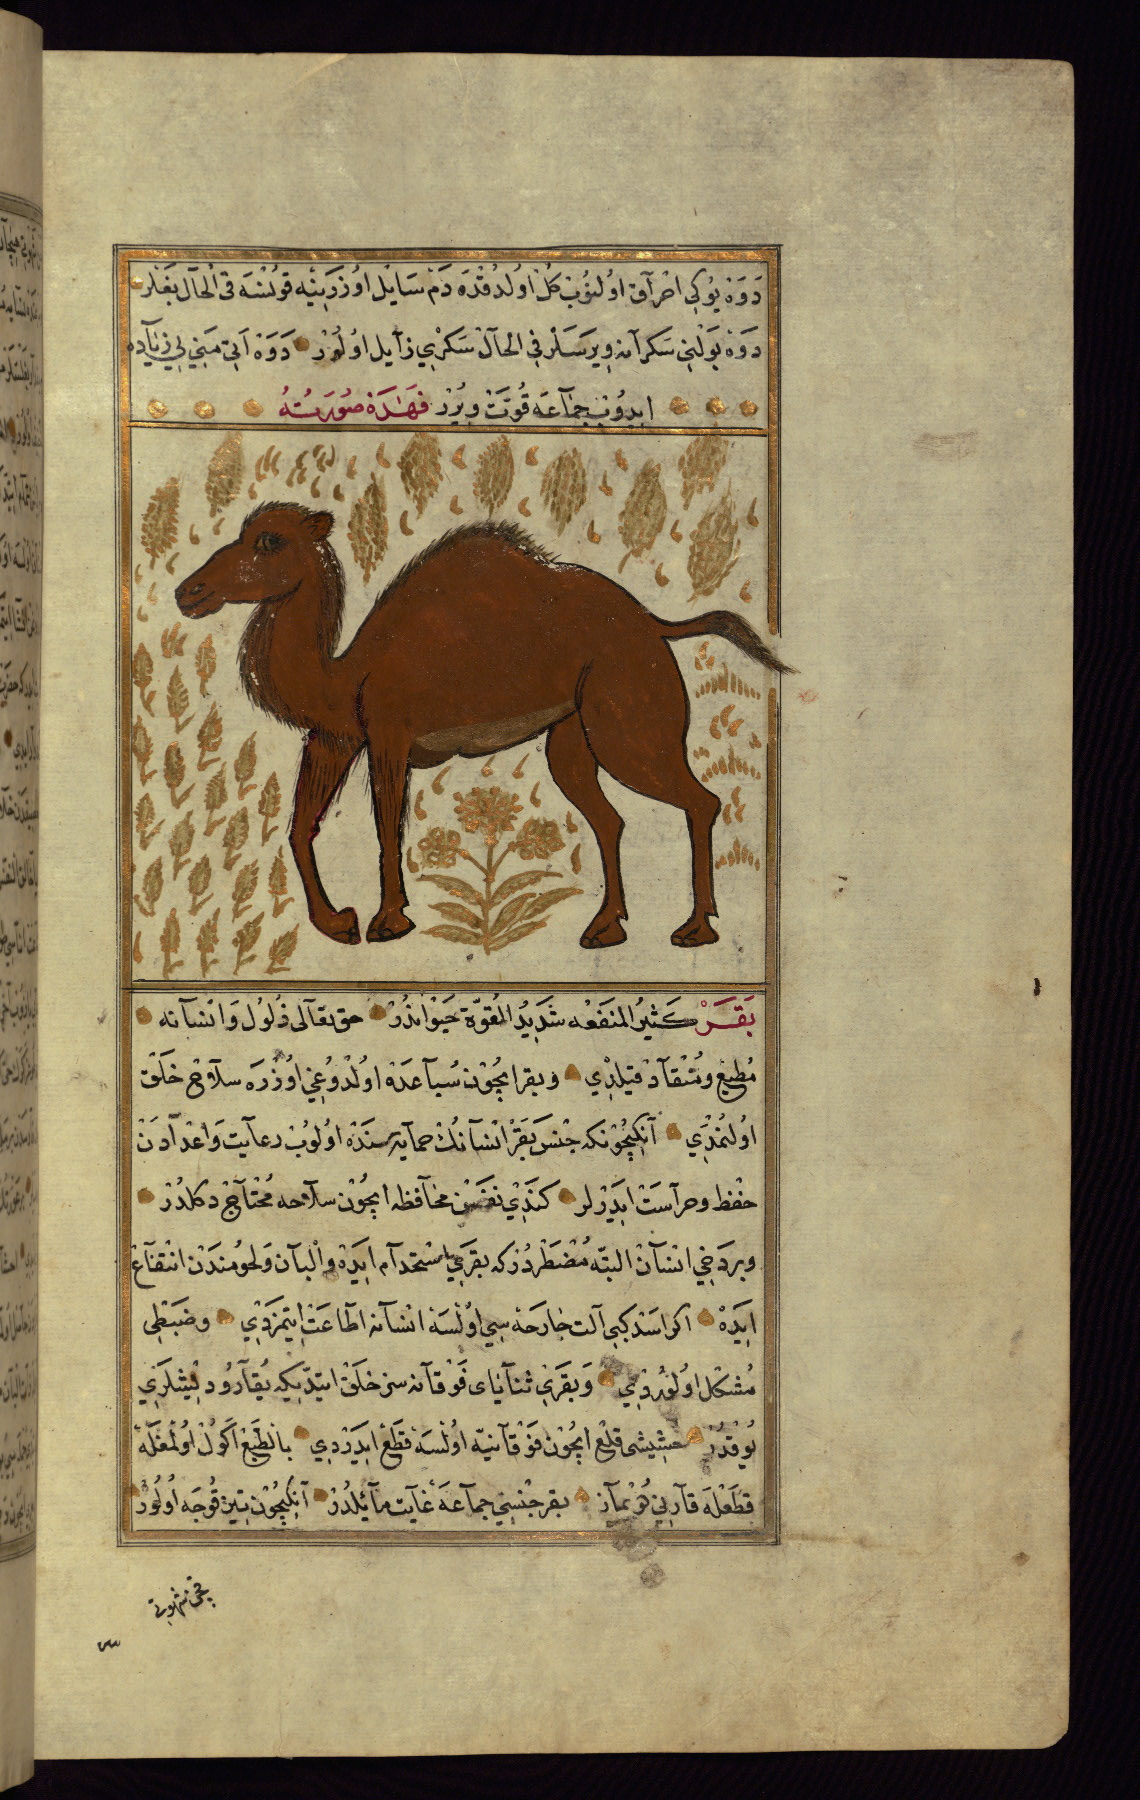 دَوَهْ يُوكِي احْرَآق اوُلنُوبْ كُلْ اوُلدُقْدَه دَمْ سَايِلْ اوُزَرِينَه قونُسَه فى الْحَال بَغْلَر
دَوَهْ بَوْلِنِي سَكرَآنه وِيرسَلَرْ فِي الحَآلْ سَكْرِي زَآيِل اوُلُورْ دَوَهْ اَتِى مَنِي يِي زِيَآدَه
ايدُوبْ جِمَآعَه قُوَّتْ وِيرُرْ فَهَذِهْ صُورَتُهُ
بَقَرْ كَثيُر المنَفَعْه شَدِيدُ القُوّة حَيَوَانْدُرْ حق تعَالَى ذُلوُل وَانْسَآنه
مُطِيعْ ومُنْقَآدْ قيلدِي وبقر ايچُوْن سُبآعدَه اوُلدُوغِي اوُزْرَه سلَاح خَلَقْ
اوُلنمَدِي آنكِيچُونكه جِنْس بَقَرْ انْسَآنُكْ حمايَه سنَدَه اوُلوُبْ رعَآيت وَاعْدآدَنْ
حْفظ وحرآسَتْ ايدَرْلر كنَدِي نَفْسِنْ محَآفظه ايچُوْن سلَاحه مُحْتَآجْ دكلدُرْ
وبرَدَخِي انسَآنْ البتّه مُضْطَرْدُرْكه بقَرِي استخدَآم ايدَه والْبَآن وَلحوُمندَنْ انْتفَآعْ
ايدَه اكر اسَدْ كبِي آلت جَارحَه سِي اوُلْسَه انسَآنه اطَاعَتْ ايتمزدِي وضَبْطِى
مُشكل اوُلوُردِي وَبقَرِي ثنَآيَاى فَوْقَآنه سز خَلَقْ ايتدِيكه يُقَآرُو دِيشْلَرِي
يوُقدُرْ حَشِيشى قلْع ايچُوْن فَوْقَآنيَّه اوُلْسَه قطْع ايدَرْدِي بالطَّبْع اَكوُل اوُلمغَله
قطعْله قَآرنِي طُويمَآز بقر جنْسِي جمَآعَه غَآيت مَآئِلدُرْ آنكيچُوْن تِيز قُوجَه اوُلُورْ
حتى شهوتى